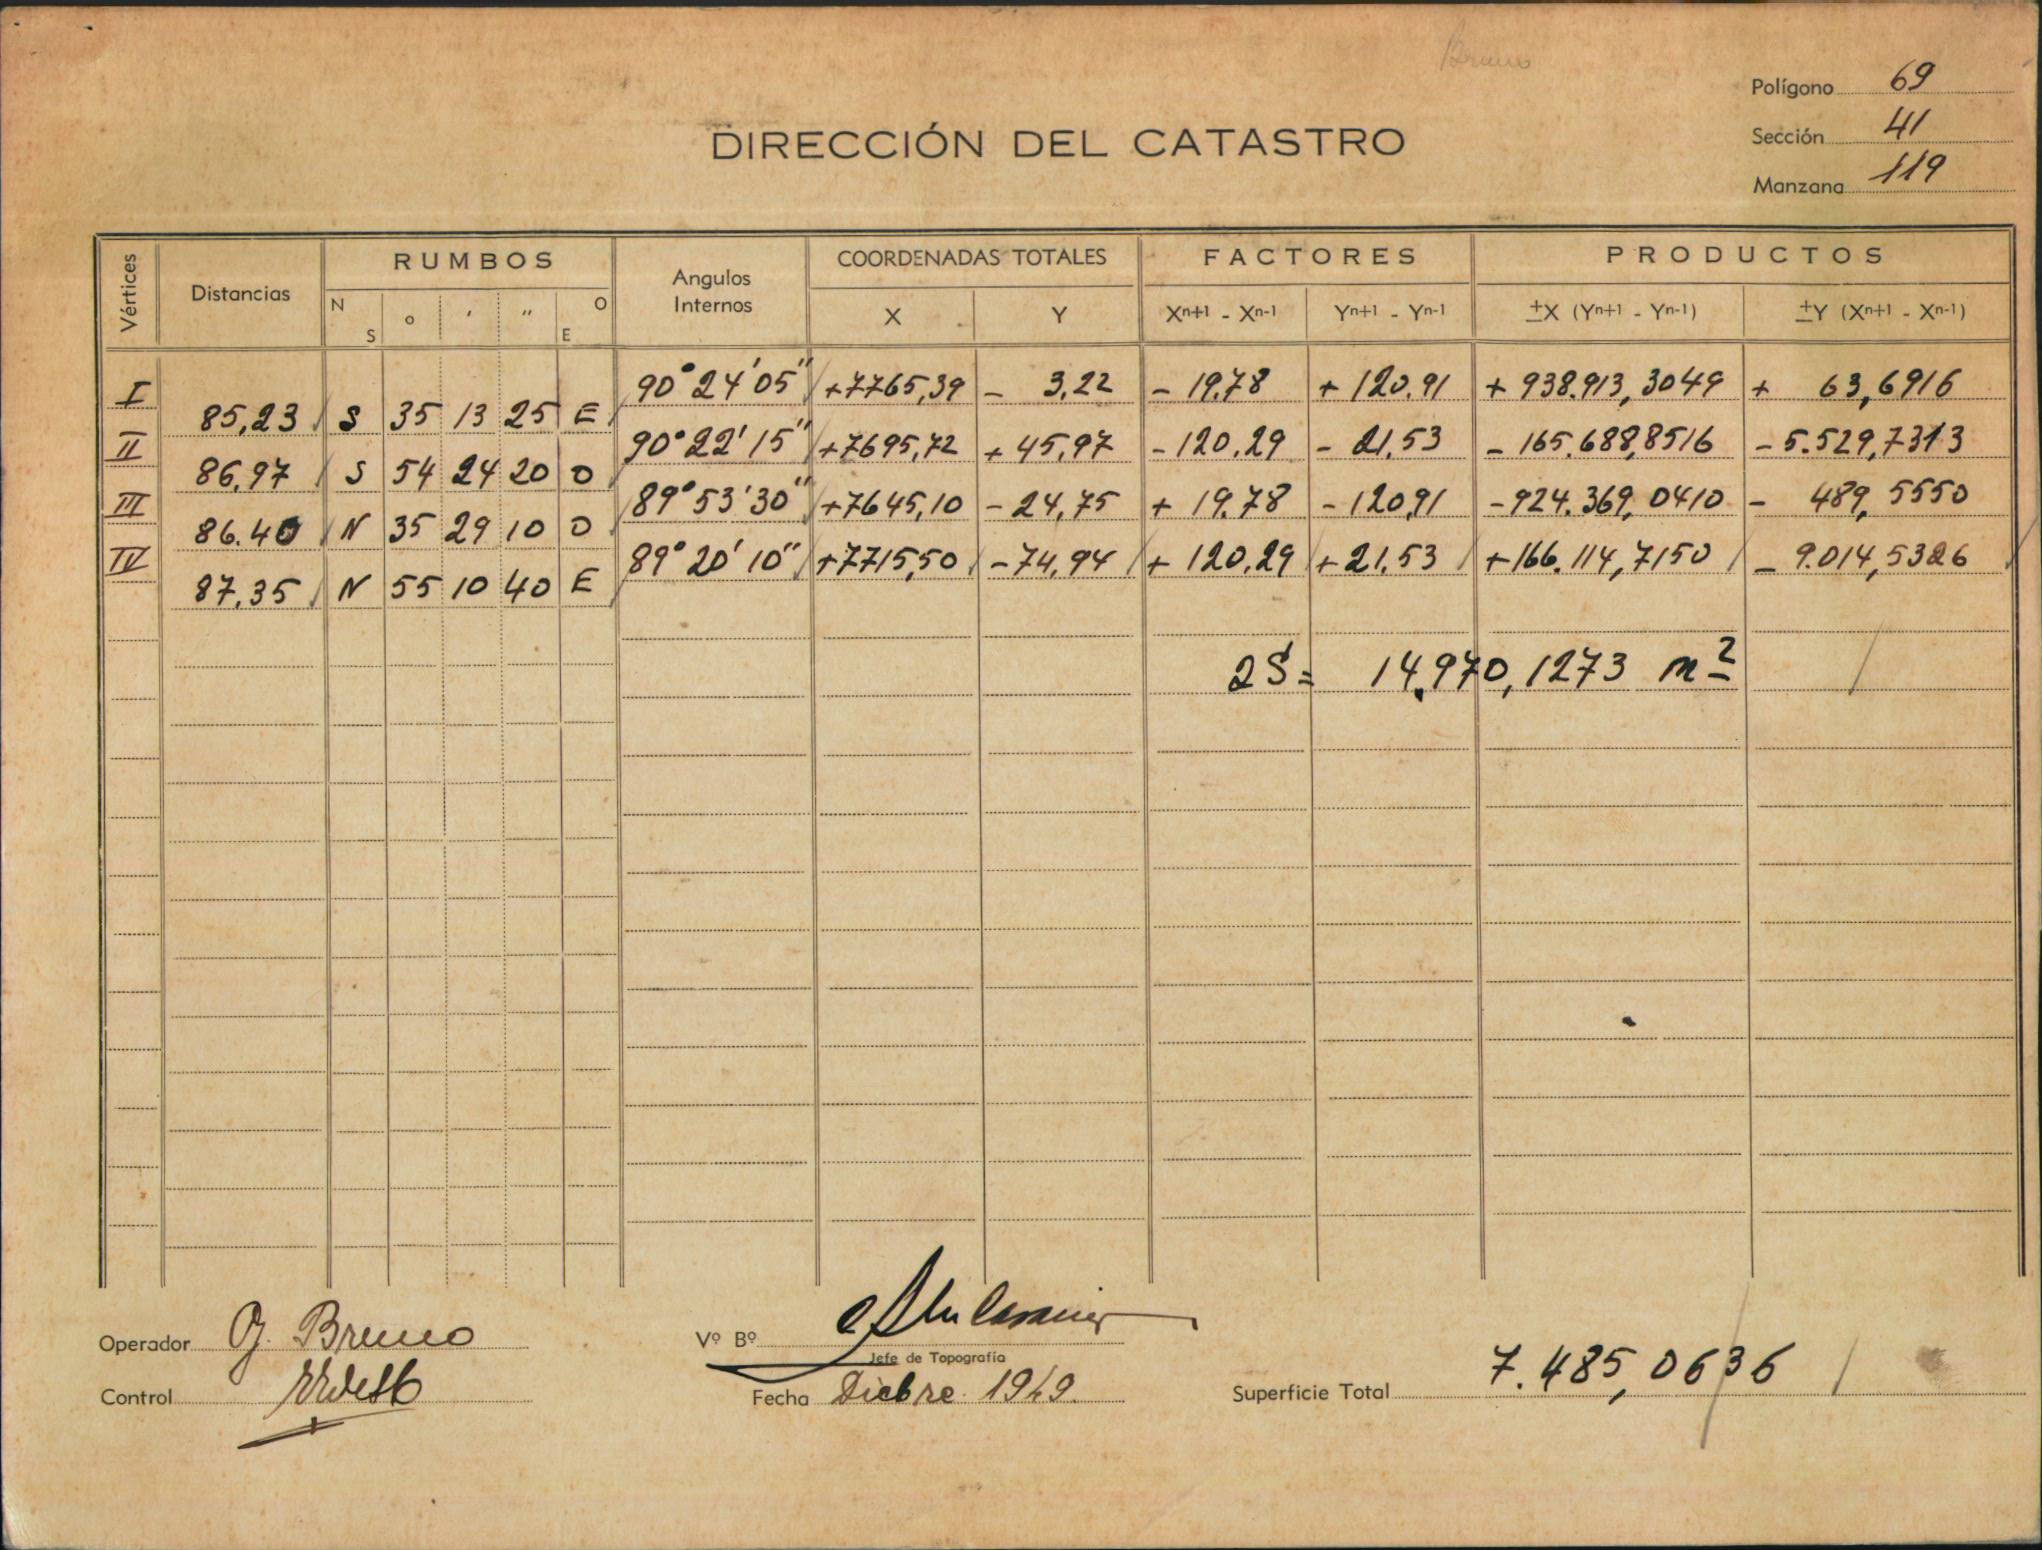 Bruno
Polígono 69
Sección 41
Manzana 119
DIRECCIÓN DEL CATASTRO
Vértices Distancias RUMBOS Angulos Internos COORDENADAS TOTALES FACTORES PRODUCTOS
N S o ' " O E X Y Xn+1 - Xn-1 Yn+1 - Yn-1 ±X (Yn+1 - Yn-1) ±Y (Xn+1 - Xn-1)
I 90° 24' 05" +7765,39 - 3,22 - 19.78 + 120.91 + 938.913,3049 + 63,6916
85,23 S 35 13 25 E
II 90° 22' 15" +7695,72 + 45,97 - 120.29 - 21.53 - 165.688,8516 - 5.529,7313
86,97 S 54 24 20 O
III 89° 53' 30" +7645,10 - 24,75 + 19.78 - 120,91 - 924.369,0410 - 489,5550
86.40 N 35 29 10 O
IV 89° 20' 10" +7715,50 - 74,94 + 120.29 + 21.53 + 166.114,7150 - 9.014,5326
87,35 N 55 10 40 E
2S = 14.970,1273 m2
Operador Bruno
Vº Bº
Jefe de Topografía
Control
Fecha Dicbre. 1949.
Superficie Total 7.485,0636